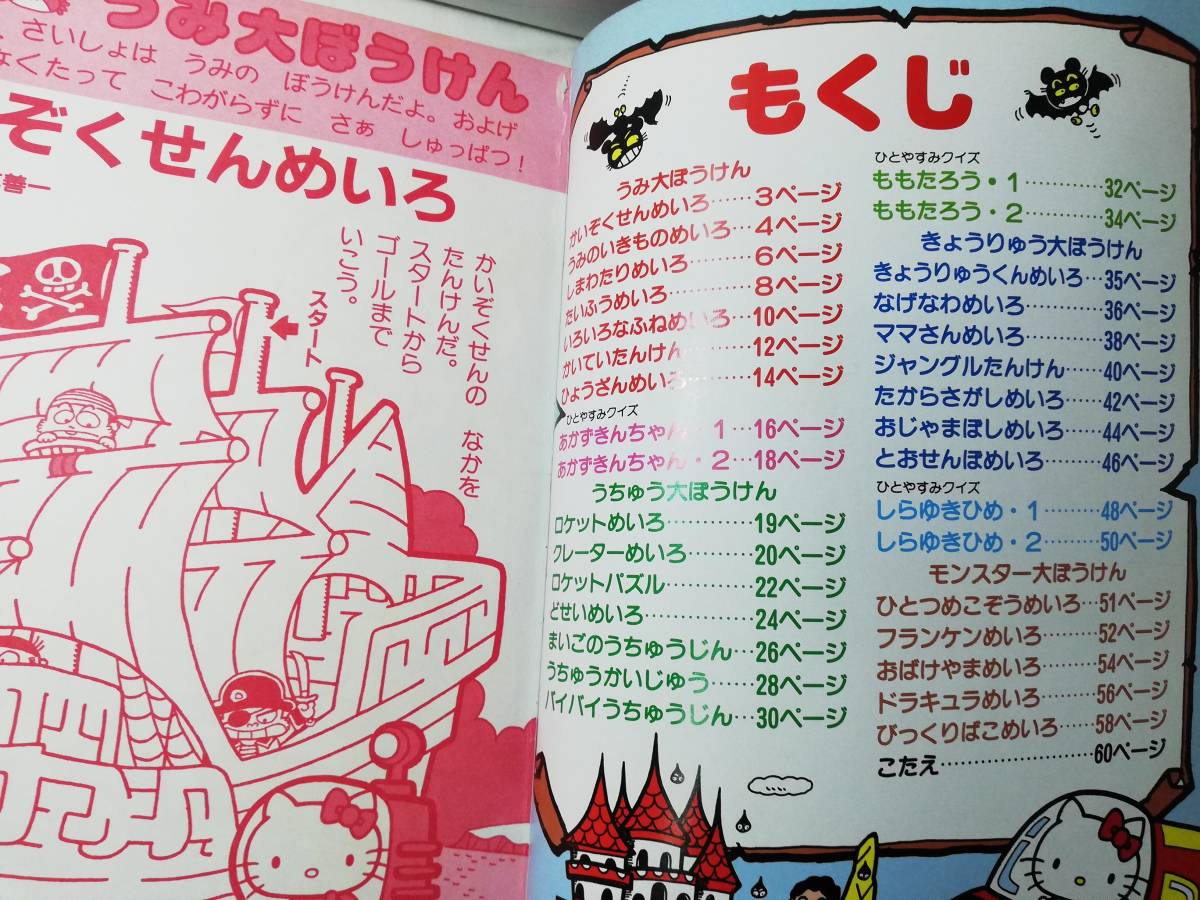 うみ大ぼうけん
さいしょは うみの ぼうけんだよ。およげ
なくたって こわがらずに さぁ しゅっぱつ！
ぞくせんめいろ
善一
かいぞくせんの なかを
たんけんだ。
スタートから
ゴールまで
いこう。
スタート
もくじ
うみ大ぼうけん
かいぞくせんめいろ……3ページ
うみのいきものめいろ…4ページ
しまわたりめいろ………6ページ
たいふうめいろ…………8ページ
いろいろなふねめいろ…10ページ
かいていたんけん………12ページ
ひょうざんめいろ………14ページ
ひとやすみクイズ
あかずきんちゃん・1…16ページ
あかずきんちゃん・2…18ページ
うちゅう大ぼうけん
ロケットめいろ…………19ページ
クレーターめいろ………20ページ
ロケットパズル…………22ページ
どせいめいろ……………24ページ
まいごのうちゅうじん…26ページ
うちゅうかいじゅう……28ページ
バイバイうちゅうじん…30ページ
ひとやすみクイズ
ももたろう・1…………32ページ
ももたろう・2…………34ページ
きょうりゅう大ぼうけん
きょうりゅうくんめいろ…35ページ
なげなわめいろ…………36ページ
ママさんめいろ…………38ページ
ジャングルたんけん……40ページ
たからさがしめいろ……42ページ
おじゃまぼしめいろ……44ページ
とおせんぼめいろ………46ページ
ひとやすみクイズ
しらゆきひめ・1………48ページ
しらゆきひめ・2………50ページ
モンスター大ぼうけん
ひとつめこぞうめいろ…51ページ
フランケンめいろ………52ページ
おばけやまめいろ………54ページ
ドラキュラめいろ………56ページ
びっくりばこめいろ……58ページ
こたえ……………………60ページ